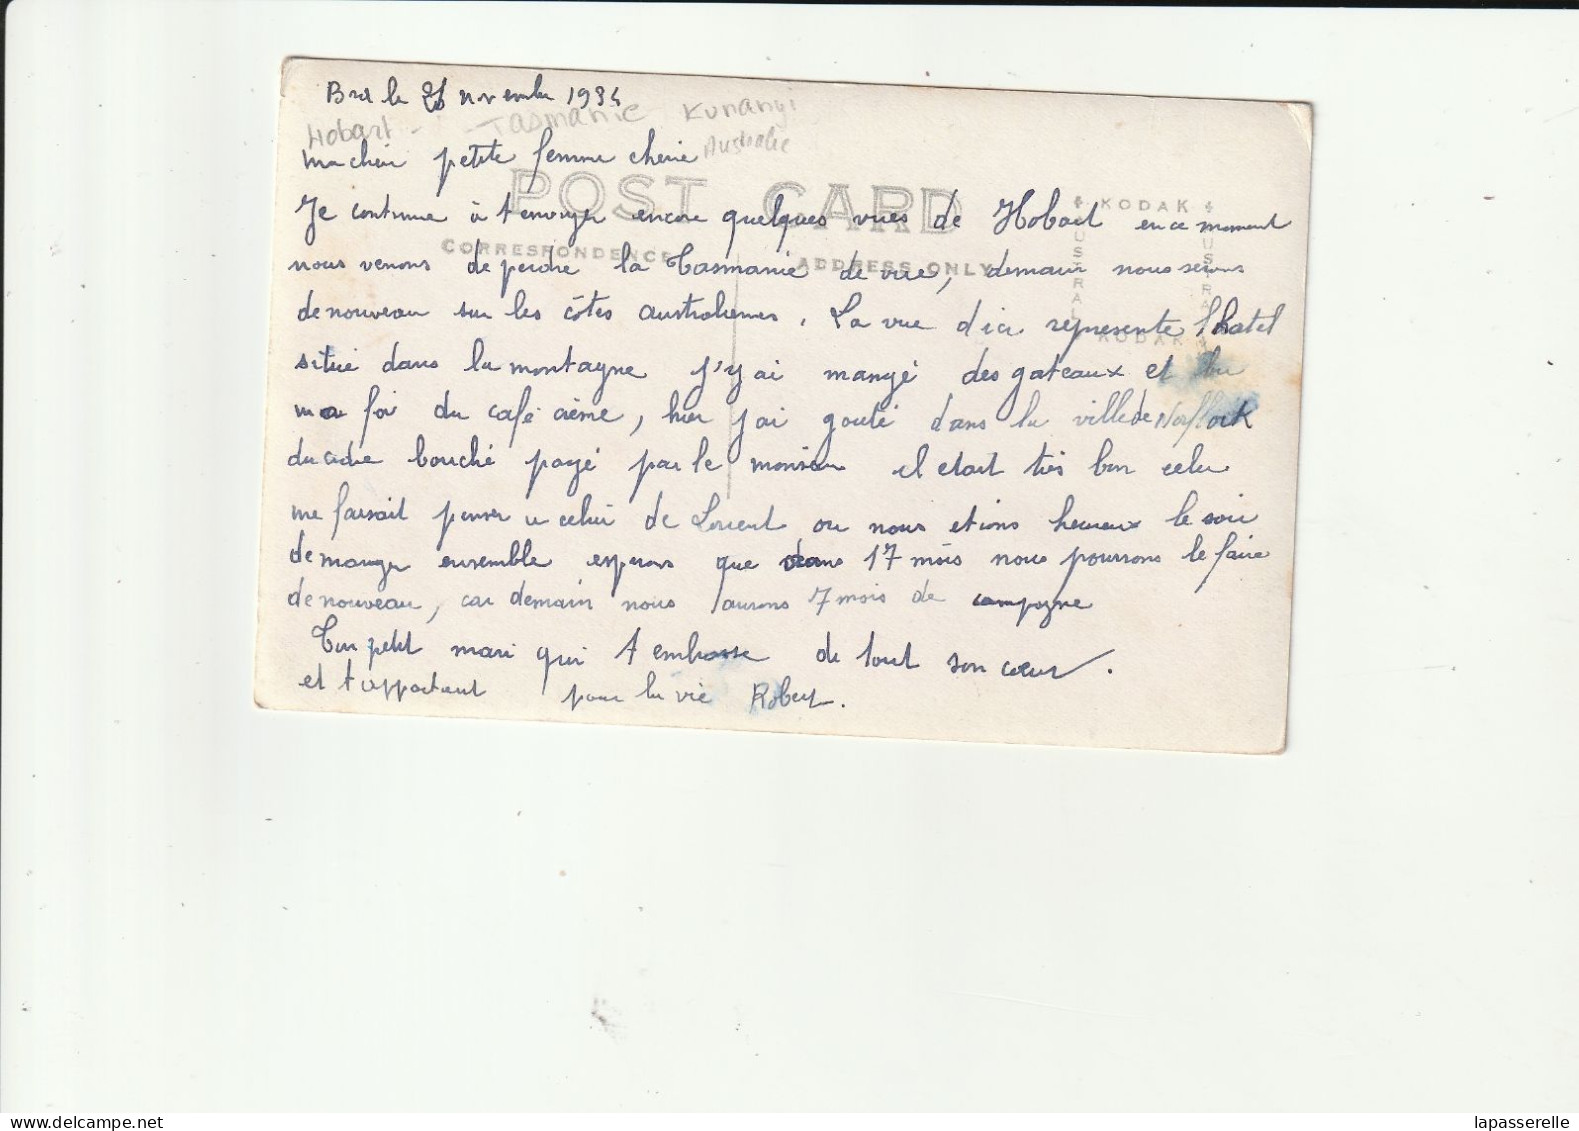 Bord le 26 novembre 1934
Hobart - Tasmanie Kunanyi
Australie
ma chère petite femme cherie
POST CARD
CORRESPONDENCE
ADDRESS ONLY
KODAK
AUSTRAL
AUSTRAL
KODAK
Je continue à t'envoyer encore quelques vues de Hobart en ce moment
nous venons de perdre la Tasmanie de vue, demain nous serons
de nouveau sur les côtes australiennes. La vue d'ici represente l'hotel
situé dans la montagne j'y ai mangé des gateaux et bu
ma foi du café crème, hier j'ai gouté dans la ville de Norflock
du cidre bouché payé par le monsieur il etait très bon celui
me faisait penser a celui de Lorient ou nous etions heureux le soir
de manger ensemble esperons que dans 17 mois nous pourrons le faire
de nouveau, car demain nous aurons 7 mois de campagne
Ton petit mari qui t'embrasse de tout son cœur.
et t'appartient pour la vie Robert.
lapasserelle